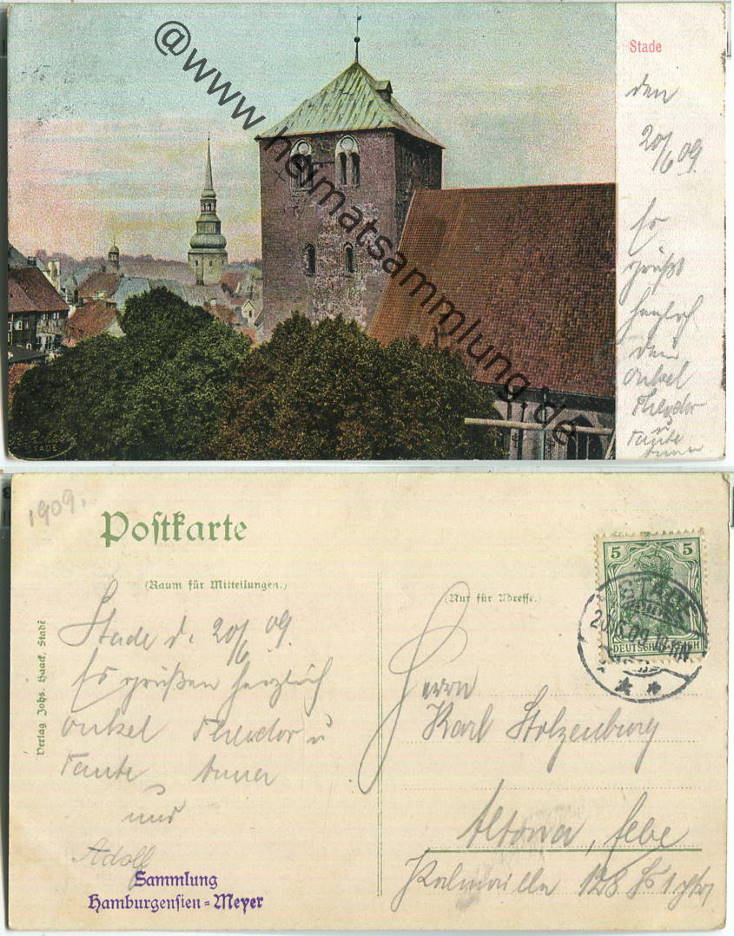 @www.heimatsammlung.de
Stade
den
20/6 09.
Es
grüßt
herzlich
dein
Onkel
Theodor
u
Tante
Anna
STADE
1909.
Postkarte
(Raum für Mitteilungen.)
(Nur für Adresse.)
Verlag Johs. Haack, Stade
5 5
DEUTSCHES REICH
STADE
20.6.09
Stade d. 20/6 09.
Es grüßen herzlich
Onkel Theodor u
Tante Anna
und
Adolf
Herrn
Karl Stolzenburg
Altona, Elbe
128
Sammlung
Hamburgensien-Meyer